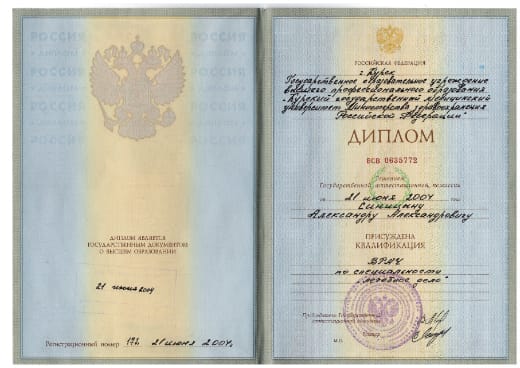 РОССИЯ
ДИПЛОМ ЯВЛЯЕТСЯ
ГОСУДАРСТВЕННЫМ ДОКУМЕНТОМ
О ВЫСШЕМ ОБРАЗОВАНИИ
21 июня 2004
Регистрационный номер 172 21 июня 2004г.
РОССИЙСКАЯ ФЕДЕРАЦИЯ
г. Курск
Государственное образовательное учреждение
высшего профессионального образования
"Курский государственный медицинский
университет Министерства здравоохранения
Российской Федерации"
ДИПЛОМ
ВСВ 0635772
Решением
Государственной аттестационной комиссии
от 21 июня 2004 года
Синицину
Александру Александровичу
ПРИСУЖДЕНА
КВАЛИФИКАЦИЯ
ВРАЧ
по специальности
"лечебное дело"
Председатель Государственной
аттестационной комиссии
Ректор
М.П.